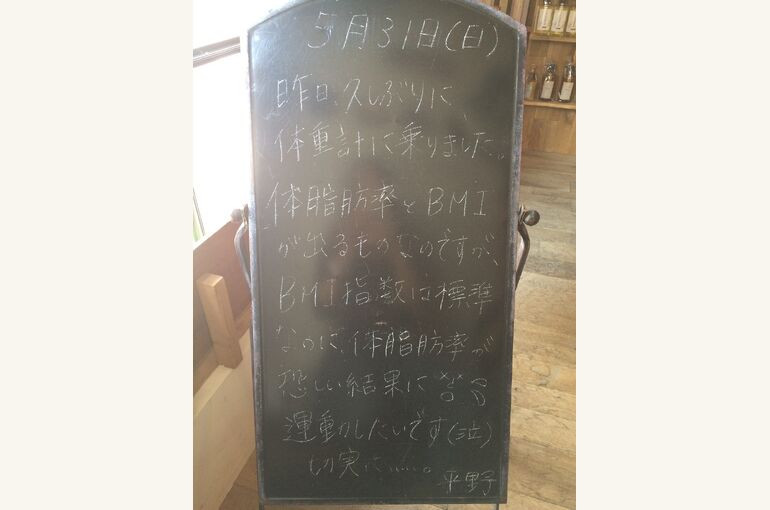 5月31日(日)
昨日、久しぶりに
体重計に乗りました。
体脂肪率とBMI
が出るものなのですが、
BMI指数は標準
なのに、体脂肪率が
恐しい結果に
運動がしたいです(泣)
切実に……。
平野